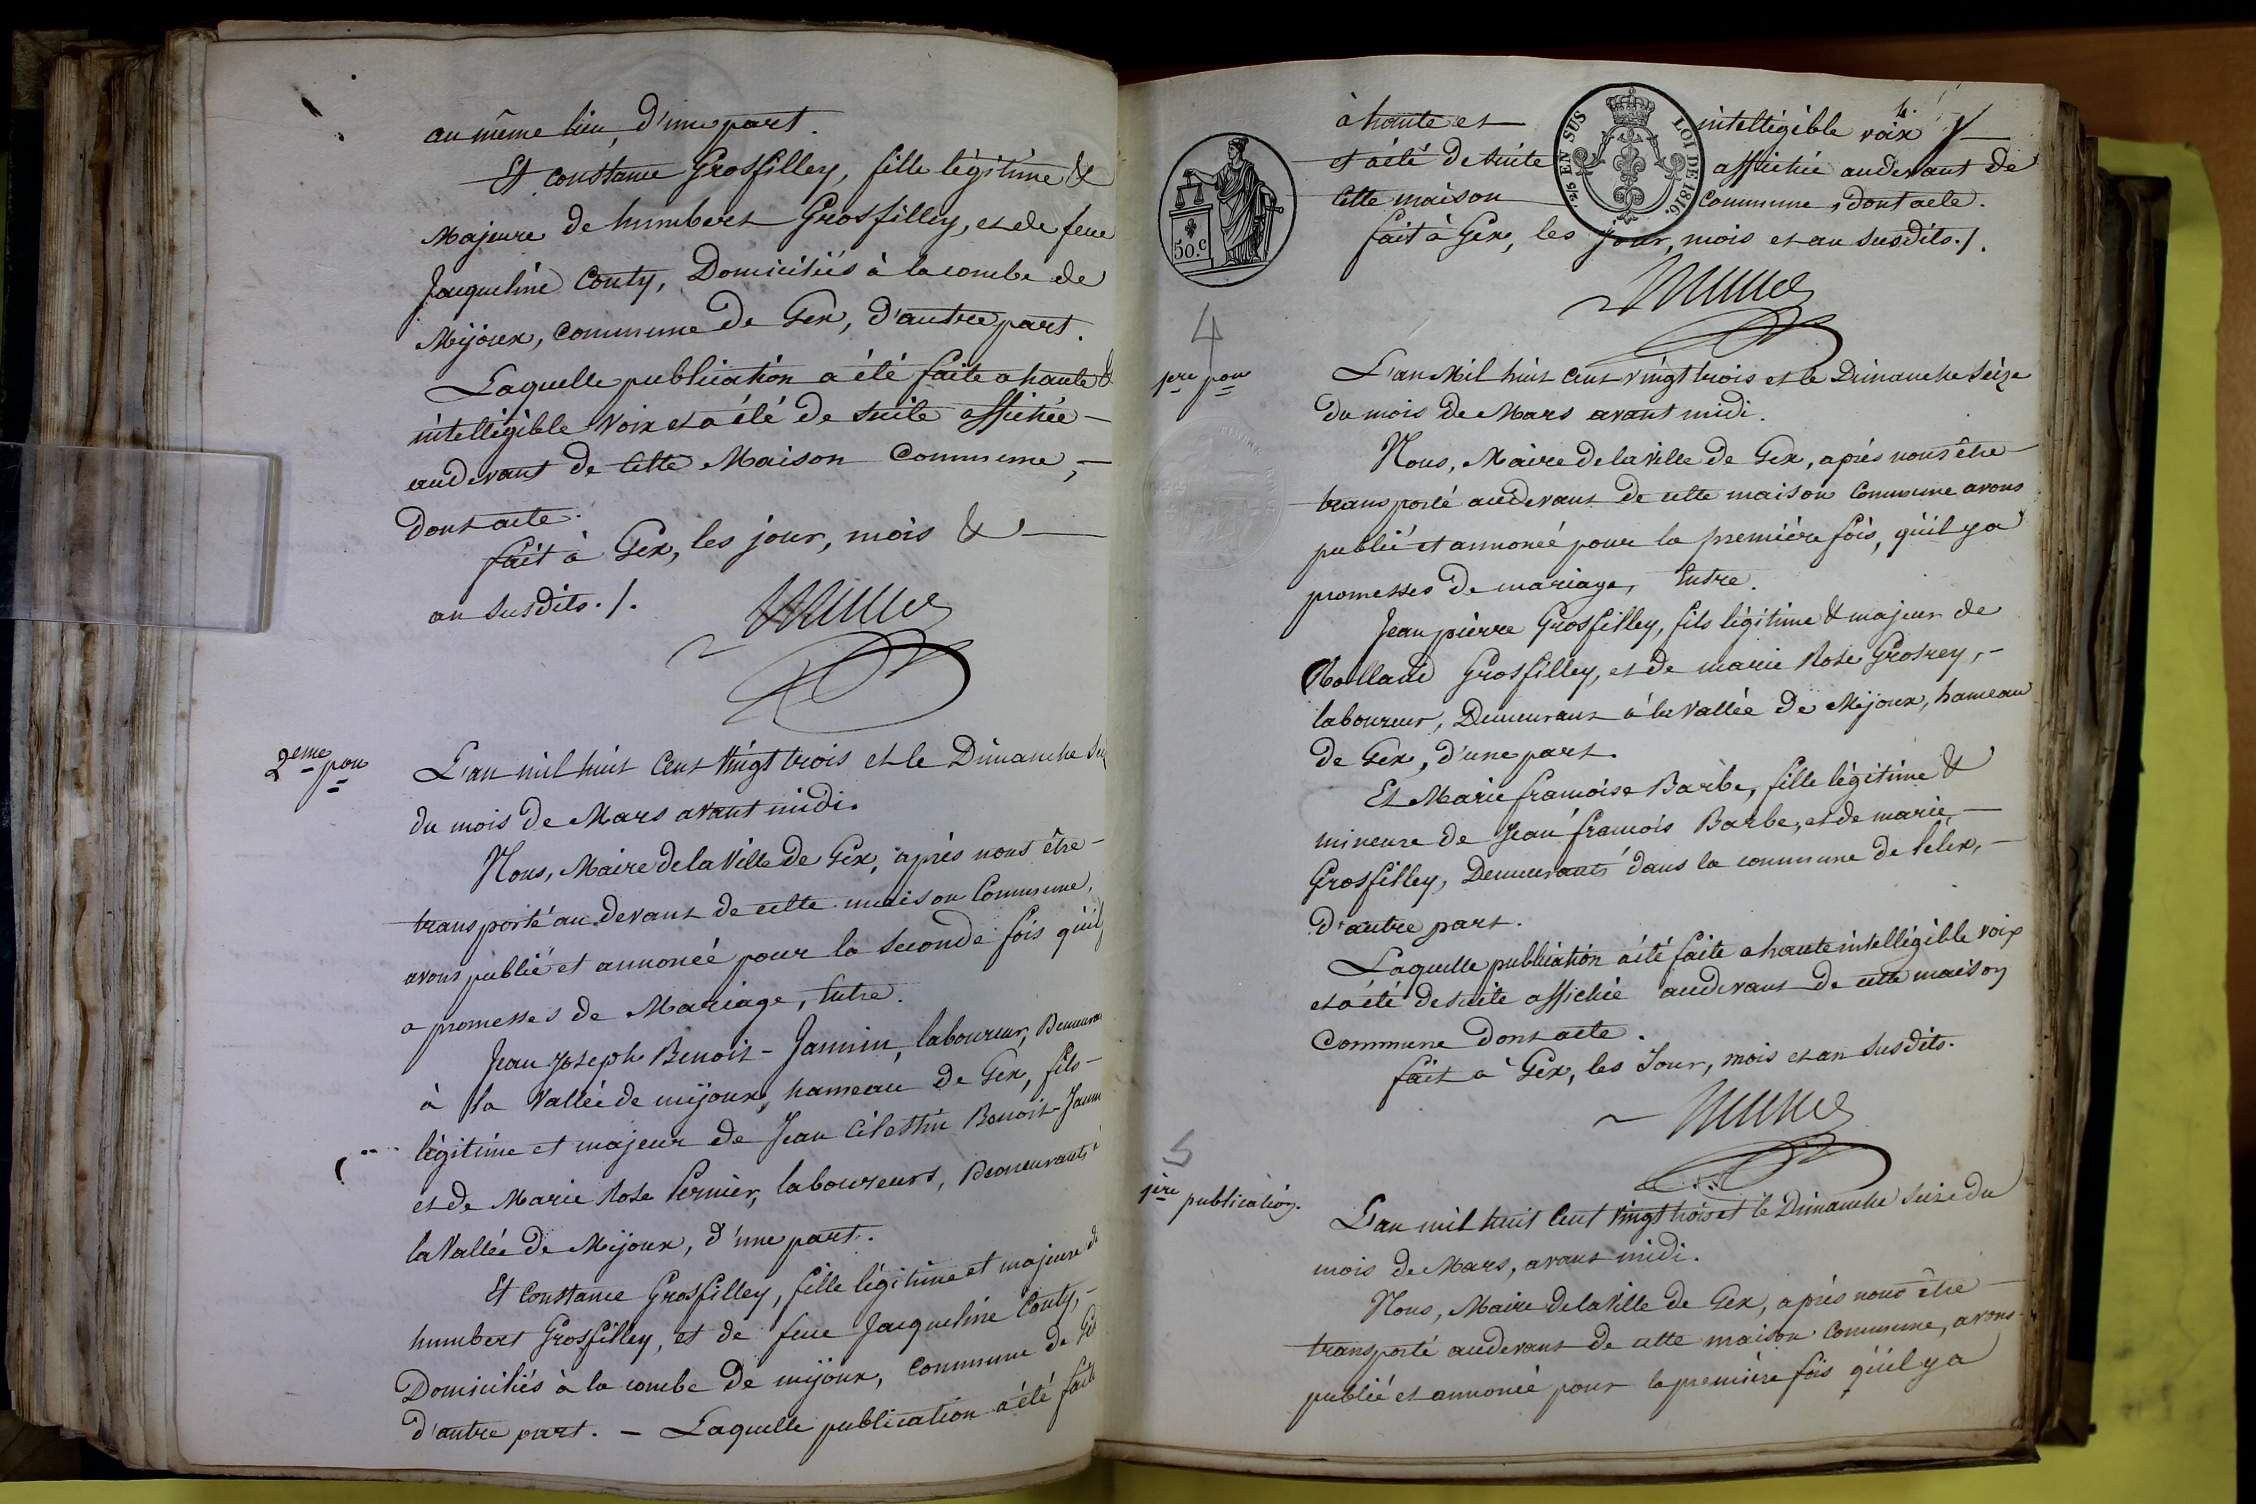 au même lieu, d'une part.
Et constance Grosfilley, fille légitime &
Majeure de humbert Grosfilley, et de feue
Jacqueline Conty, Domiciliés à la combe de
Mijoux, commune de Gex, d'autre part.
Laquelle publication a été faite a haute &
intelligible voix et a été de suite affichée
audevant de cette Maison Commune,
dont acte.
fait à Gex, les jour, mois &
an susdits./.
2eme pon
L'an mil huit cent vingt trois et le Dimanche
du mois de Mars avant midi.
Nous, Maire de la Ville de Gex, après nous être
transporté au devant de cette maison Commune,
avons publié et annoncé pour la seconde fois qu'il
a promesses de Mariage, Entre.
Jean Joseph Benoit-Jannin, laboureur, Demeura
à la Vallée de mijoux, hameau de Gex, fils
légitime et majeur de Jean Célestin Benoit-Jann
et de Marie Rose Pernier, laboureurs, Demeurants à
la Vallée de Mijoux, d'une part.
Et Constance Grosfilley, fille légitime et majeure de
humbert Grosfilley, et de feue Jacqueline Conty,
Domiciliés à la combe de mijoux, commune de
d'autre part. — Laquelle publication a été faite
4.
à haute et intelligible voix
et a été de suite affichée audevant de
cette maison commune, dont acte.
fait à Gex, les jour, mois et an susdits./.
2/5 EN SUS LOI DE 1816.
50.c
4
1re pon
L'an Mil huit cent vingt trois et le Dimanche seize
du mois de Mars avant midi.
Nous, Maire de la Ville de Gex, après nous être
transporté audevant de cette maison Commune avons
publié et annoncé pour la première fois, qu'il y a
promesses de mariage, Entre.
Jean pierre Grosfilley, fils légitime & majeur de
Rolland Grosfilley, et de marie Rose Grosrey,
laboureur, Demeurant à la Vallée de Mijoux, hameau
de Gex, d'une part.
Et Marie françoise Barbe, fille légitime &
mineure de Jean françois Barbe, et de marie
Grosfilley, Demeurants dans la commune de Lélex,
d'autre part.
Laquelle publication a été faite a haute intelligible voix
et a été de suite affichée audevant de cette maison
Commune dont acte.
fait a Gex, les Jour, mois et an susdits.
5
1ère publication.
L'an mil huit Cent vingt trois et le Dimanche seize du
mois de Mars, avant midi.
Nous, Maire de la Ville de Gex, après nous être
transporté audevant de cette maison commune, avons
publié et annoncé pour la première fois qu'il y a